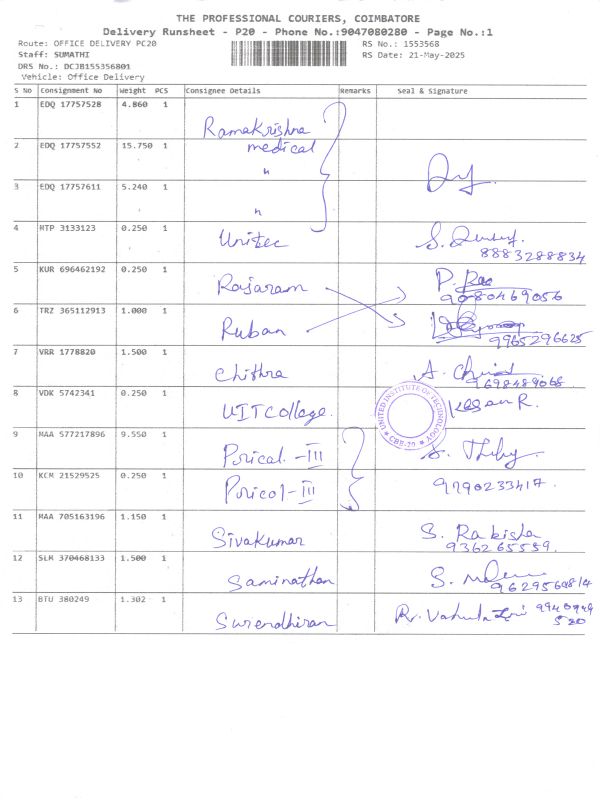 THE PROFESSIONAL COURIERS, COIMBATORE
Delivery Runsheet - P20 - Phone No.:9047080280 - Page No.:1
Route: OFFICE DELIVERY PC20 RS No.: 1553568
Staff: SUMATHI RS Date: 21-May-2025
DRS No.: DCJB155356801
Vehicle: Office Delivery
S No Consignment No Weight PCS Consignee Details Remarks Seal & Signature
1 EDQ 17757528 4.860 1 Ramakrishna
medical
2 EDQ 17757552 15.750 1 "
3 EDQ 17757611 5.240 1 "
4 MTP 3133123 0.250 1 Unitec S.
8883288834
5 KUR 696462192 0.250 1 Rajaram P.
9080469056
6 TRZ 365112913 1.000 1 Ruban
9965296625
7 VRR 1778820 1.500 1 Chithra A.
9698489068
8 VDK 5742341 0.250 1 UIT College. R.
UNITED INSTITUTE OF TECHNOLOGY
CBE-20
9 MAA 577217896 9.550 1 Porical -III
10 KCM 21529525 0.250 1 Poricol-III 9790233417.
11 MAA 705163196 1.150 1 Sivakumar S.
936265559.
12 SLM 370468133 1.500 1 Saminathan S.
13 BTU 380249 1.302 1 Surendhiran